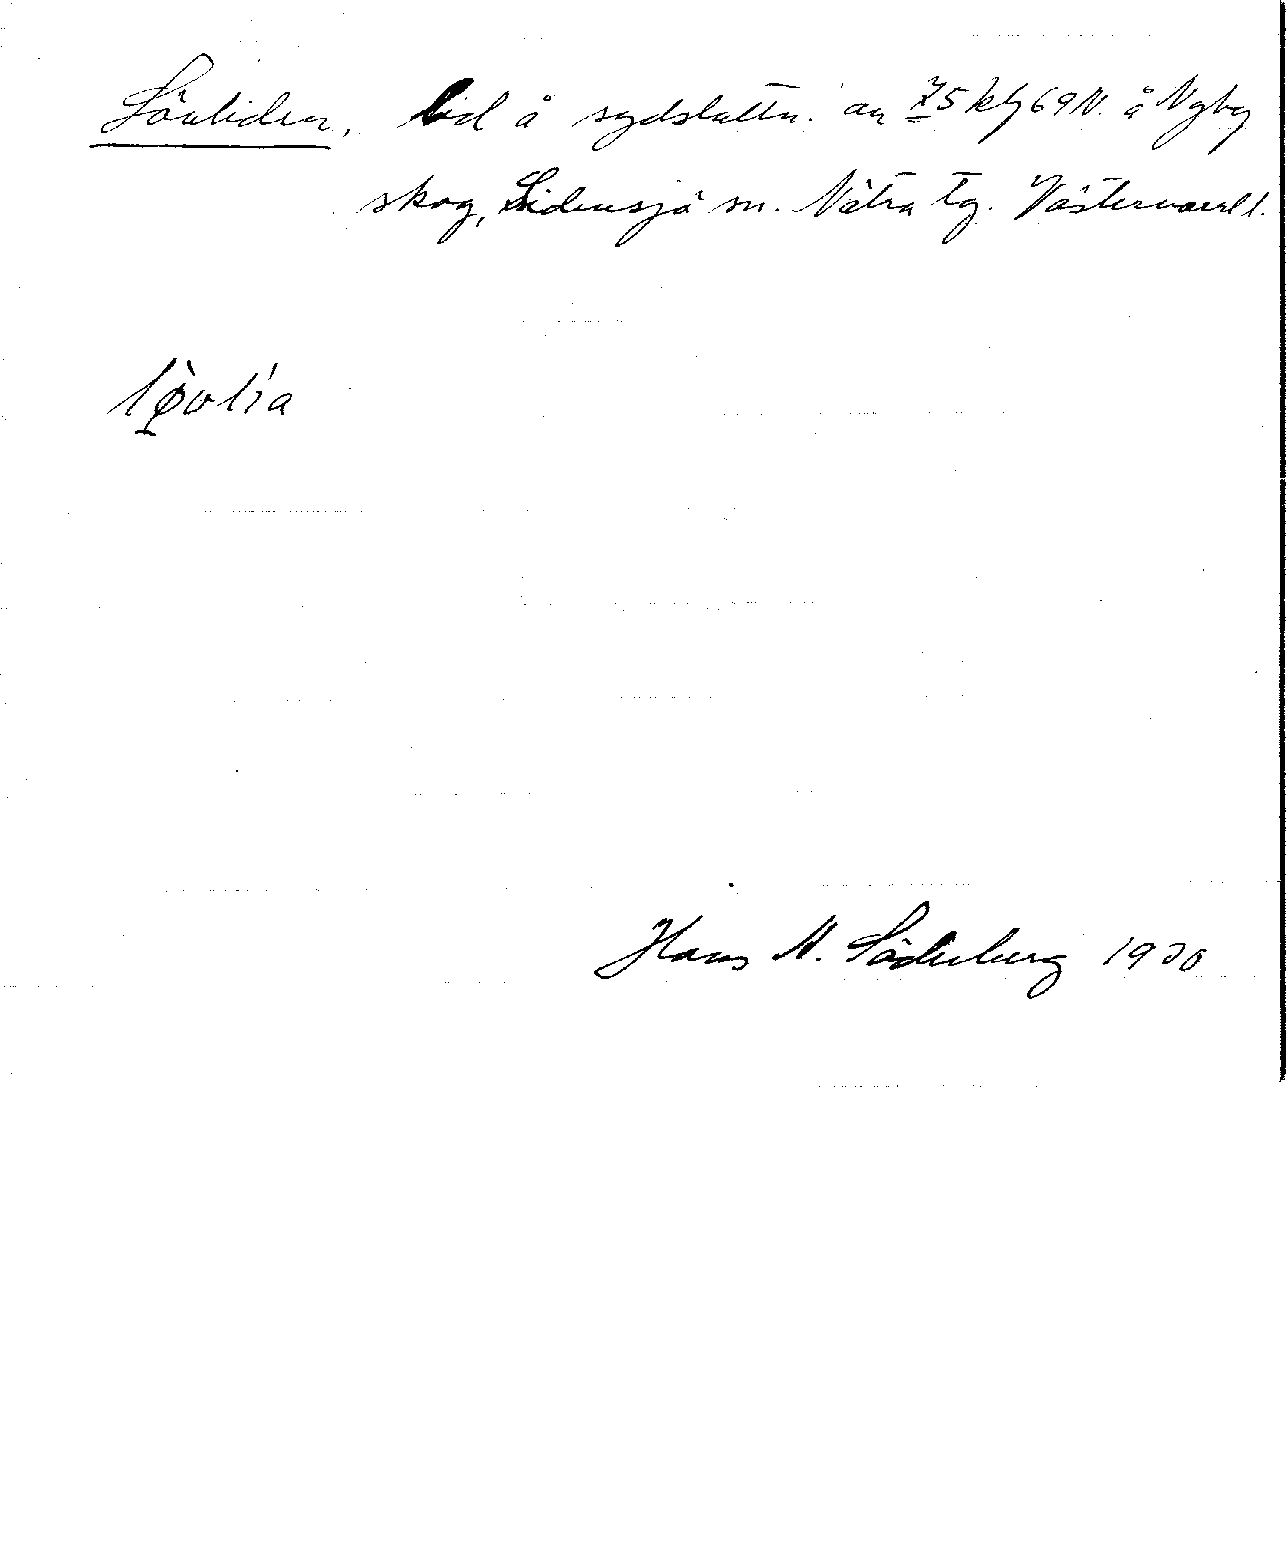 Lövliden, lid å sydslättn. av Z5k4j69N. å Nyby
skog, Sidensjö sn. Nätra tg. Västernorrl l.
lövlìa
Hans N. Söderberg 1930